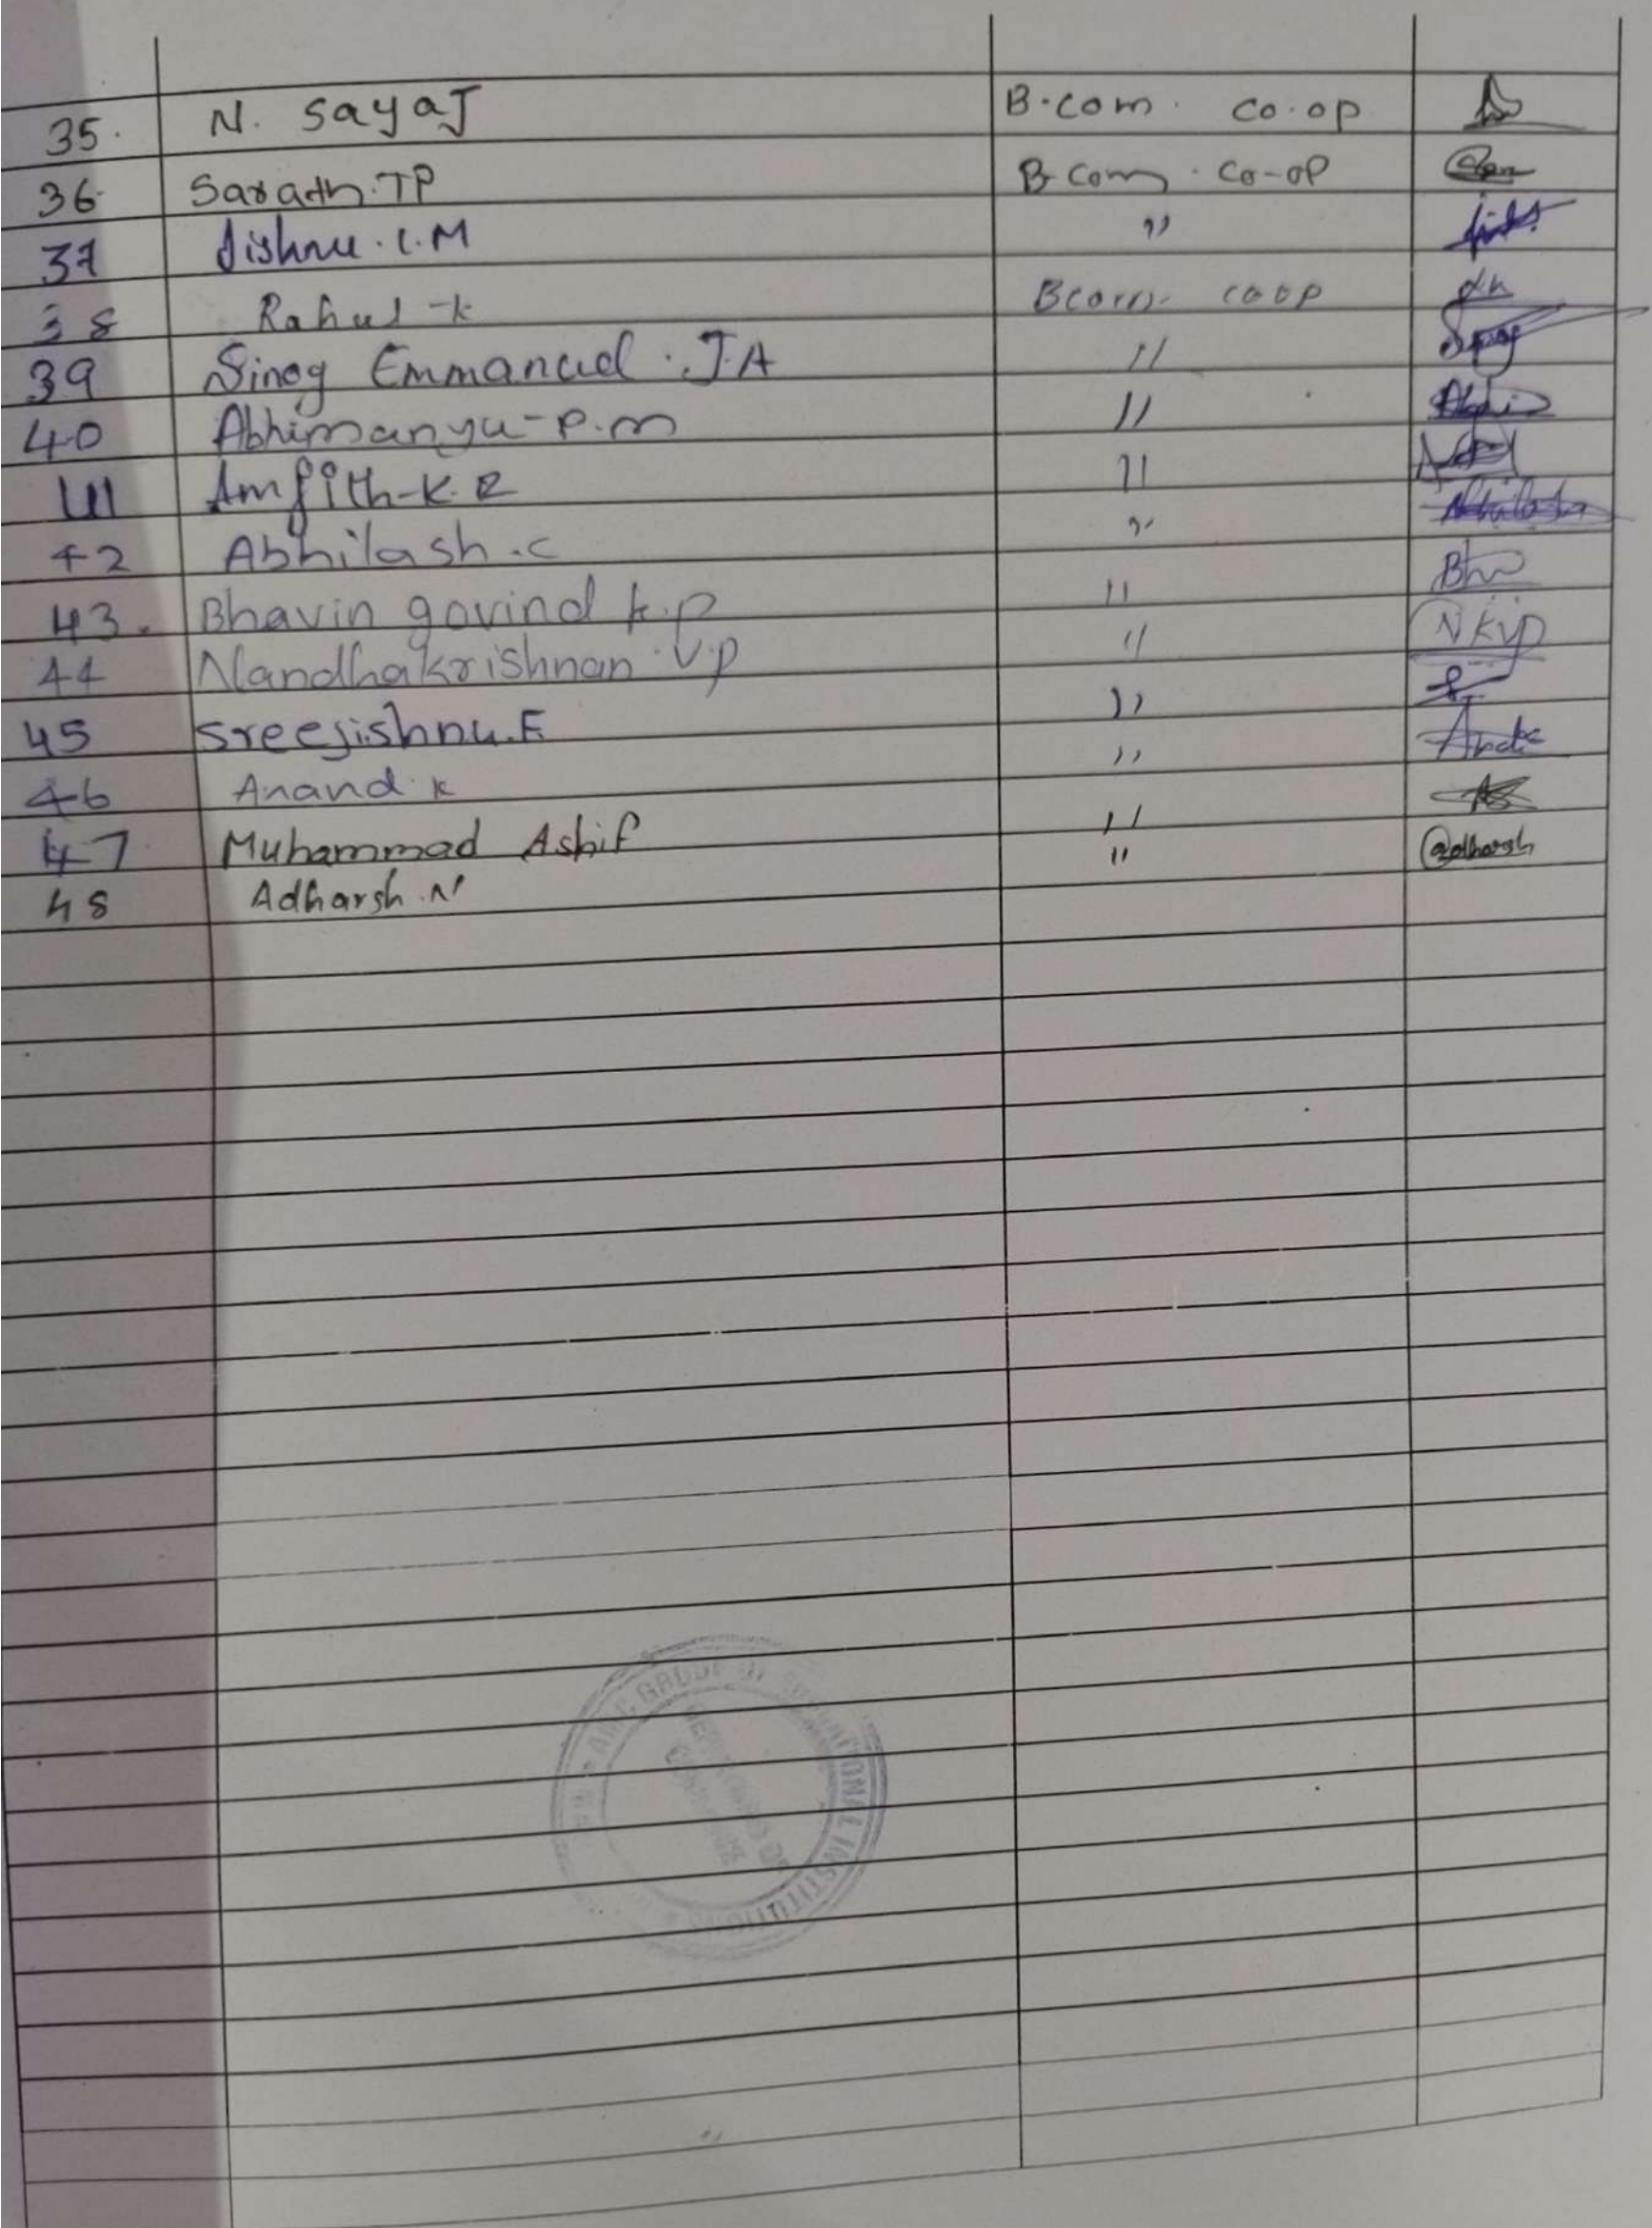 35. N. SayaJ B.com. co.op
36. Sarath.TP B.Com. Co-op
37 Jishnu.C.M "
38 Rahul-k Bcom. coop
39 Sinog Emmanuel.J.A "
40 Abhimanyu-P.m "
41 Amjith-K.R "
42 Abhilash.c " Abhilash
43. Bhavin govind k.p " Bhv
44 Nandhakrishnan.V.p " NKVP
45 Sreejishnu.E "
46 Anand.k "
47 Muhammad Ashif "
48 Adharsh.N " @adharsh
GROUP OF EDUCATIONAL INSTITUTIONS
DEPARTMENT OF
COMMERCE